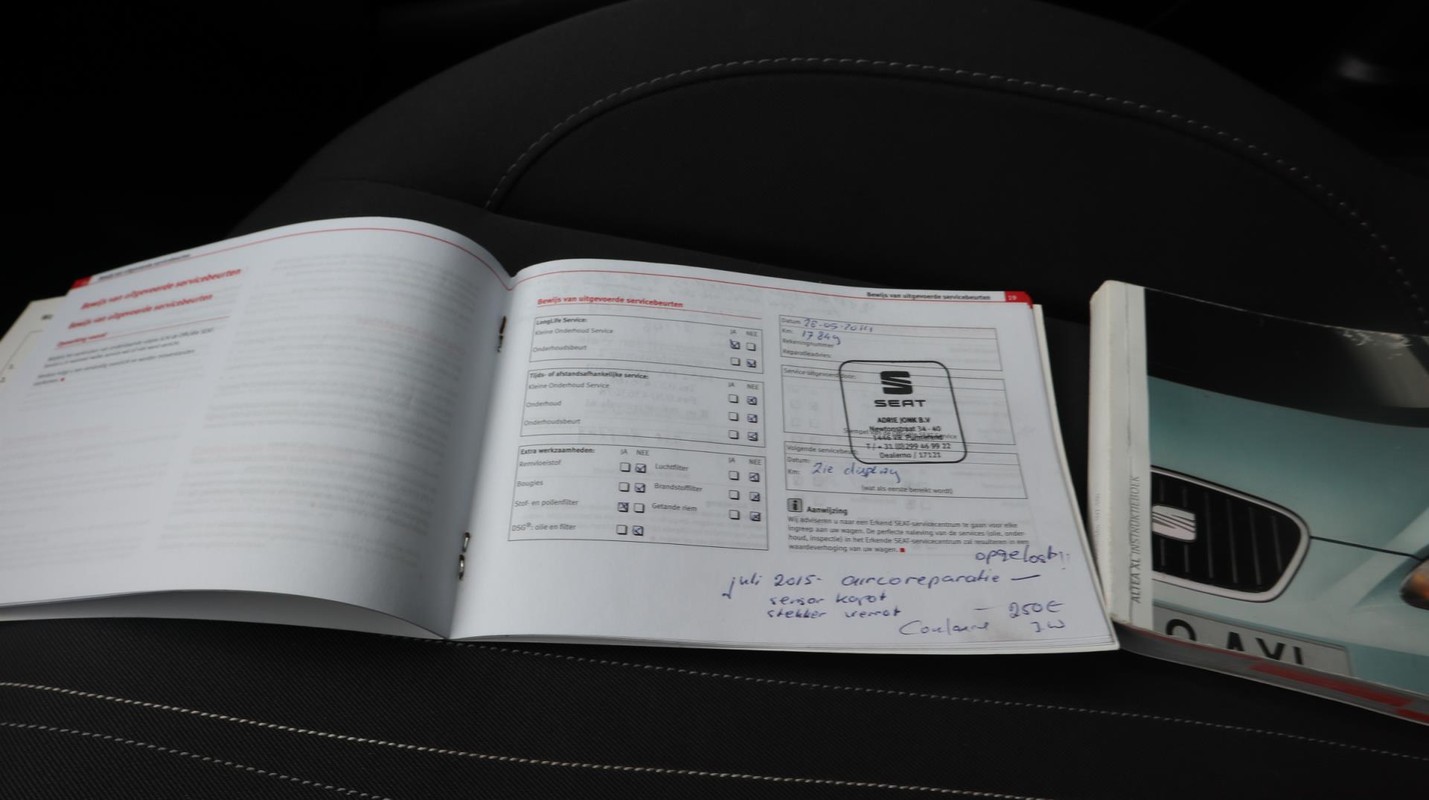 Bewijs van uitgevoerde servicebeurten
Bewijs van uitgevoerde servicebeurten
Bewijs van uitgevoerde servicebeurten 19
Bewijs van uitgevoerde servicebeurten
LongLife Service:
JA NEE
Kleine Onderhoud Service
Onderhoudsbeurt
Tijds- of afstandsafhankelijke service:
JA NEE
Kleine Onderhoud Service
Onderhoud
Onderhoudsbeurt
Extra werkzaamheden: JA NEE JA NEE
Remvloeistof Luchtfilter
Bougies Brandstoffilter
Stof- en pollenfilter Getande riem
DSG®: olie en filter
Datum:
Km: 17849
Rekeningnummer
Reparatieadvies:
Service uitgevoerd door:
SEAT
ADRIE JONK B.V
Newtonstraat 34 - 40
T / + 31 (0)299 46 99 22
Dealerno / 17121
Volgende servicebeurt
Datum:
Km: Zie display
(wat als eerste bereikt wordt)
Aanwijzing
Wij adviseren u naar een Erkend SEAT-servicecentrum te gaan voor elke
ingreep aan uw wagen. De perfecte naleving van de services (olie, onder-
houd, inspectie) in het Erkende SEAT-servicecentrum zal resulteren in een
waardeverhoging van uw wagen.
opgelost!!
juli 2015- aircoreparatie —
sensor kapot
stekker verrot — 250€
J.W
ALTEA XL INSTRUKTIEBOEK